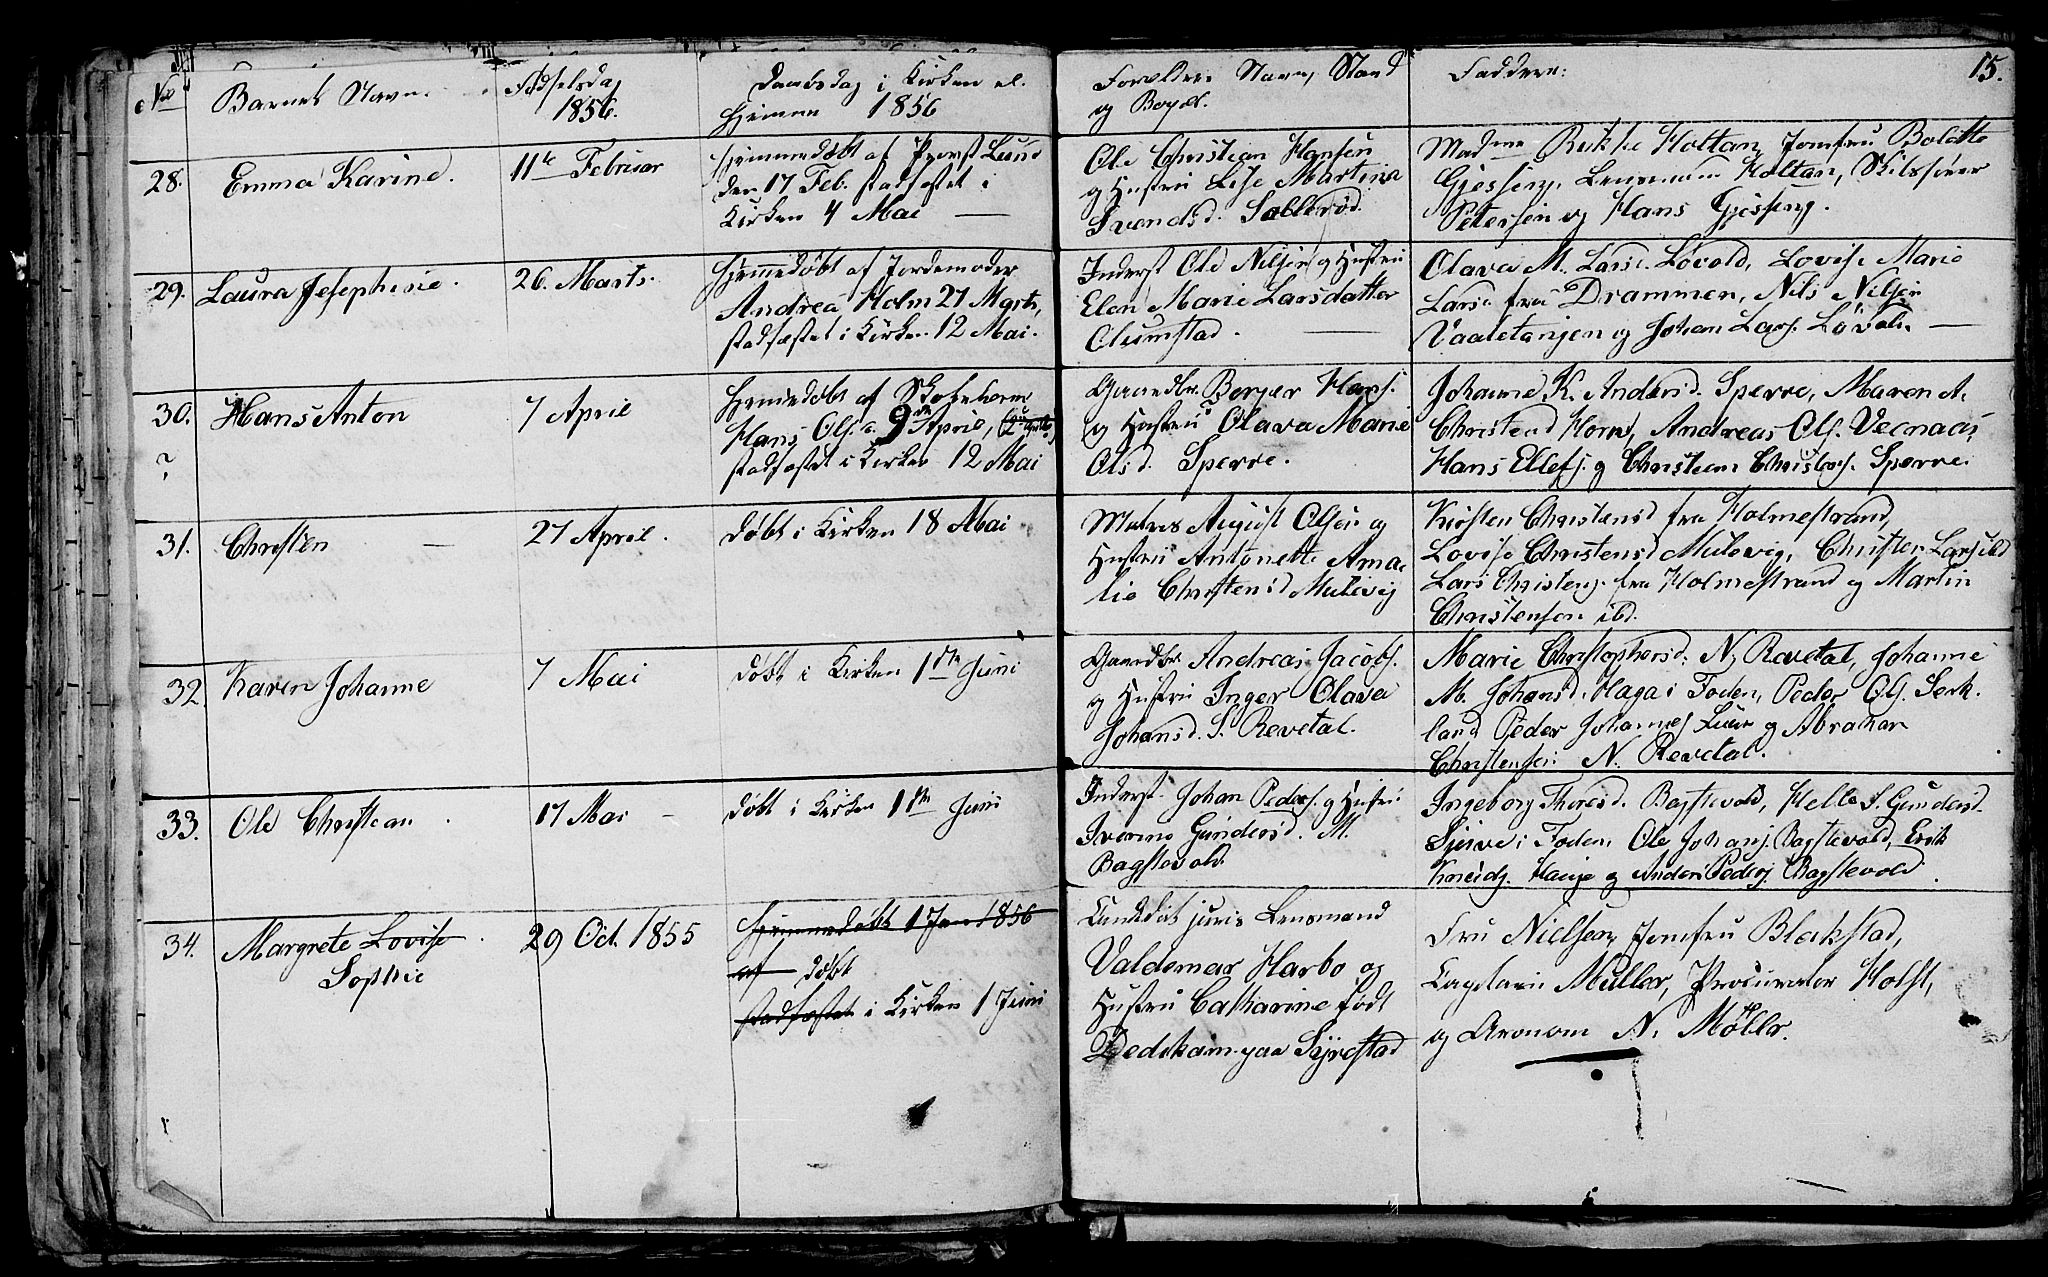 15.
No
Barnets Navn.
Fødselsdag
1856.
Daabsdag i Kirken el.
Hjemme 1856
Forældres Navn, Stand
og Bopæl.
Faddere:
28.
Emma Karine.
11te Februar
Hjemmedøbt af Provst Lund
den 17 Feb. stadfæstet i
Kirken 4 Mai —
Ole Christian Hansen
og Hustru Lise Martine
Svendsd. Sollerød.
Madme Rikke Holtan, Jomfru Bolette
Gjessing, Lensmand Holtan, Skibsfører
Petersen og Hans Gjessing.
29.
Laura Josephine.
26. Marts.
Hjemmedøbt af Jordemoder
Andrea Holm 27 Marts,
stadfæstet i Kirken 12 Mai.
Inderst Ole Nilsen og Hustru
Elen Marie Larsdatter
Olumstad. —
Olava M. Larsd. Løvold, Lovise Marie
Larsd. fra Drammen, Nils Nilsen
Vaaletangen og Johan Lars. Løvold. —
30.
?
Hans Anton
7 April
Hjemmedøbt af Skoleholder
Hans Ols. 9de April,
stadfæstet i Kirken 12 Mai
Gaardbr. Berger Hans.
og Hustru Olava Marie
Olsd. Sperre.
Johanne K. Andersd. Sperre, Maren A.
Christensd Horn, Andreas Ols. Vecnaas,
Hans Ellefs. og Christian Christens. Sperre.
31.
Christen —
27 April.
døbt i Kirken 18 Mai
Matros August Olsen og
Hustru Antonette Ama-
lie Christensd Mulevig
Kirsten Christensd fra Holmestrand,
Lovise Christensd Mulevig, Christen Lars. ibd
Lars Christens. fra Holmestrand og Martin
Christensen ibd.
32
Karen Johanne
7 Mai
døbt i Kirken 1ste Juni
Gaardbr Andreas Jacobs.
og Hustru Inger Olava
Johansd. S. Revetal.
Marie Christophersd. N. Revetal, Johanne
M. Johansd. Haga i Foden, Peder Ols. Sork-
land Peder Johannes. Lien og Abraham
Christensen N. Revetal.
33.
Ole Christian.
17 Mai —
døbt i Kirken 1ste Juni
Inderst Johan Peders. og Hustru
Iverine Gundersd. M.
Bagstevold.
Ingeborg Thoresd. Bagstevold, Helle S. Gundersd.
i Foden, Ole Johans. Bagstevold, Erik
Knuds. Hauge og Anders Peders. Bagstevold.
34.
Margrete Lovise
Sophie
29 Oct. 1855
Hjemmedøbt 1 Jan 1856
af — døbt
stadfæstet i Kirken 1 Juni
Candidat juris Lensmand
Valdemar Harbo og
Hustru Catharine født
Dedekam paa Syrestad
Fru Nielsen, Jomfru Blakstad,
Capitain Müller, Procurator Holst,
og Øconom N. Møller.